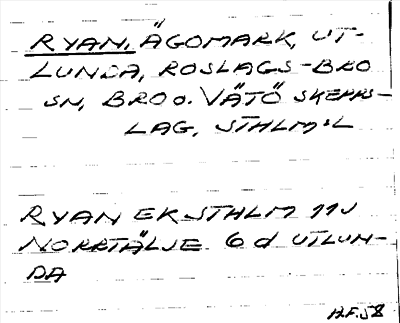 RYAN, ÄGOMARK, UT-
LUNDA, ROSLAGS-BRO
SN, BRO O. VÄTÖ SKEPPS-
LAG, STHLM:L
RYAN EK STHLM 11J
NORRTÄLJE 6d UTLUN-
DA
H.F.58